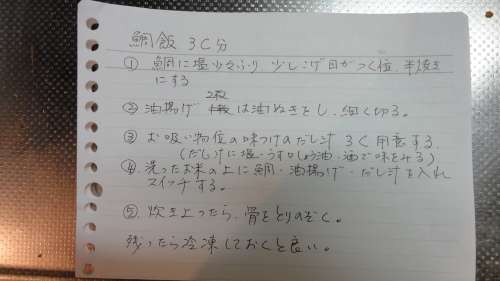 鯛飯 3C分
① 鯛に塩少々ふり 少しこげ目がつく位、半焼き
にする
② 油揚げ 2枚は油ぬきをし、細く切る。
③ お吸い物位の味つけのだし汁 3C用意する
(だし汁に塩・うす口しょう油・酒で味をみる)
④ 洗ったお米の上に鯛・油揚げ・だし汁を入れ
スイッチする。
⑤ 炊き上ったら、骨をとりのぞく。
残ったら冷凍しておくと良い。